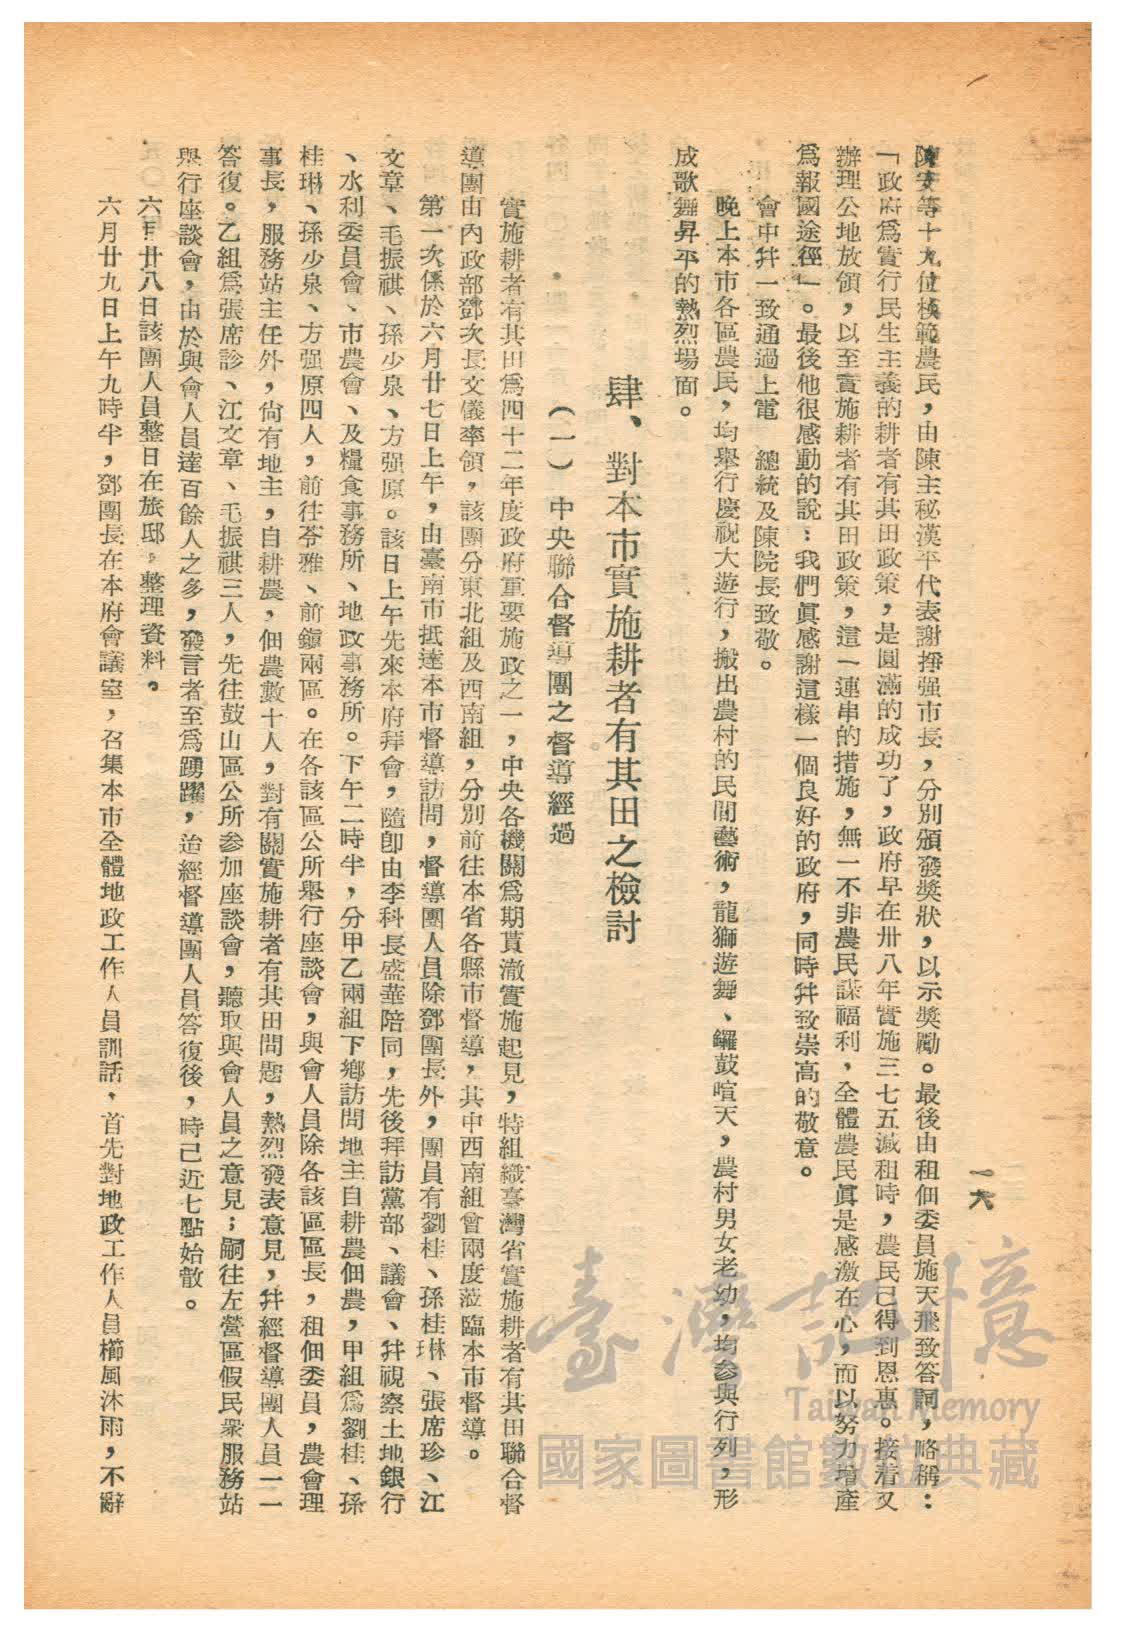 一六
陳安等十九位模範農民，由陳主秘漢平代表謝掙强市長，分別頒發獎狀，以示獎勵。最後由租佃委員施天飛致答詞，略稱：
「政府爲實行民生主義的耕者有其田政策，是圓滿的成功了，政府早在卅八年實施三七五減租時，農民已得到恩惠。接着又
辦理公地放領，以至實施耕者有其田政策，這一連串的措施，無一不非農民謀福利，全體農民眞是感激在心，而以努力增產
爲報國途徑」。最後他很感動的說：我們眞感謝這樣一個良好的政府，同時幷致崇高的敬意。
會中幷一致通過上電　總統及陳院長致敬。
晚上本市各區農民，均舉行慶祝大遊行，搬出農村的民間藝術，龍獅遊舞、鑼鼓喧天，農村男女老幼，均參與行列，形
成歌舞昇平的熱烈場面。
肆、對本市實施耕者有其田之檢討
（一）中央聯合督導團之督導經過
實施耕者有其田爲四十二年度政府重要施政之一，中央各機關爲期貫澈實施起見，特組織臺灣省實施耕者有其田聯合督
導團由內政部鄧次長文儀率領，該團分東北組及西南組，分別前往本省各縣市督導，其中西南組會兩度蒞臨本市督導。
第一次係於六月廿七日上午，由臺南市抵達本市督導訪問，督導團人員除鄧團長外，團員有劉桂、孫桂琳、張席珍、江
文章、毛振祺、孫少泉、方强原。該日上午先來本府拜會，隨卽由李科長盛華陪同，先後拜訪黨部、議會、幷視察土地銀行
、水利委員會、市農會、及糧食事務所、地政事務所。下午二時半，分甲乙兩組下鄉訪問地主自耕農佃農，甲組爲劉桂、孫
桂琳、孫少泉、方强原四人，前往苓雅、前鎭兩區。在各該區公所舉行座談會，與會人員除各該區區長，租佃委員，農會理
事長，服務站主任外，尙有地主，自耕農，佃農數十人，對有關實施耕者有其田問題，熱烈發表意見，幷經督導團人員一一
答復。乙組爲張席診、江文章、毛振祺三人，先往鼓山區公所參加座談會，聽取與會人員之意見；嗣往左營區假民衆服務站
舉行座談會，由於與會人員達百餘人之多，發言者至爲踴躍，迨經督導團人員答復後，時己近七點始散。
六月廿八日該團人員整日在旅邸，整理資料。
六月廿九日上午九時半，鄧團長在本府會議室，召集本市全體地政工作人員訓話，首先對地政工作人員櫛風沐雨，不辭
臺灣記憶
Taiwan Memory
國家圖書館數位典藏